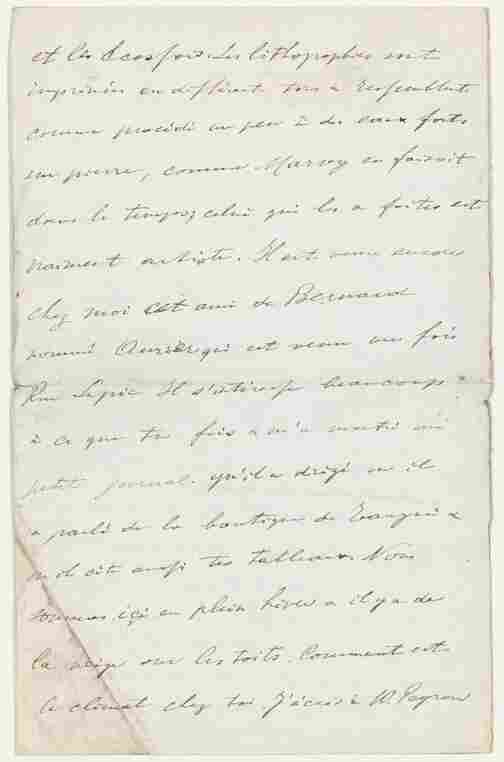 et les Ecossais. Les lithographies sont
imprimées en différents tons & ressemblent
comme procédé un peu à des eaux fortes
sur pierre, comme Marvy en faisait
dans le temps; celui qui les a faites est
vraiment artiste. Il est venu encore
chez moi cet ami de Bernard
nommé Aurier qui est venu une fois
Rue Lepic. Il s'intéresse beaucoup
à ce que tu fais & m'a montré un
petit journal qu'il a dirigé où il
a parlé de la boutique de Tanguy &
où il cite aussi tes tableaux. Nous
sommes içi en plein hiver & il y a de
la neige sur les toits. Comment est
le climat chez toi. J'écris à M. Peyron